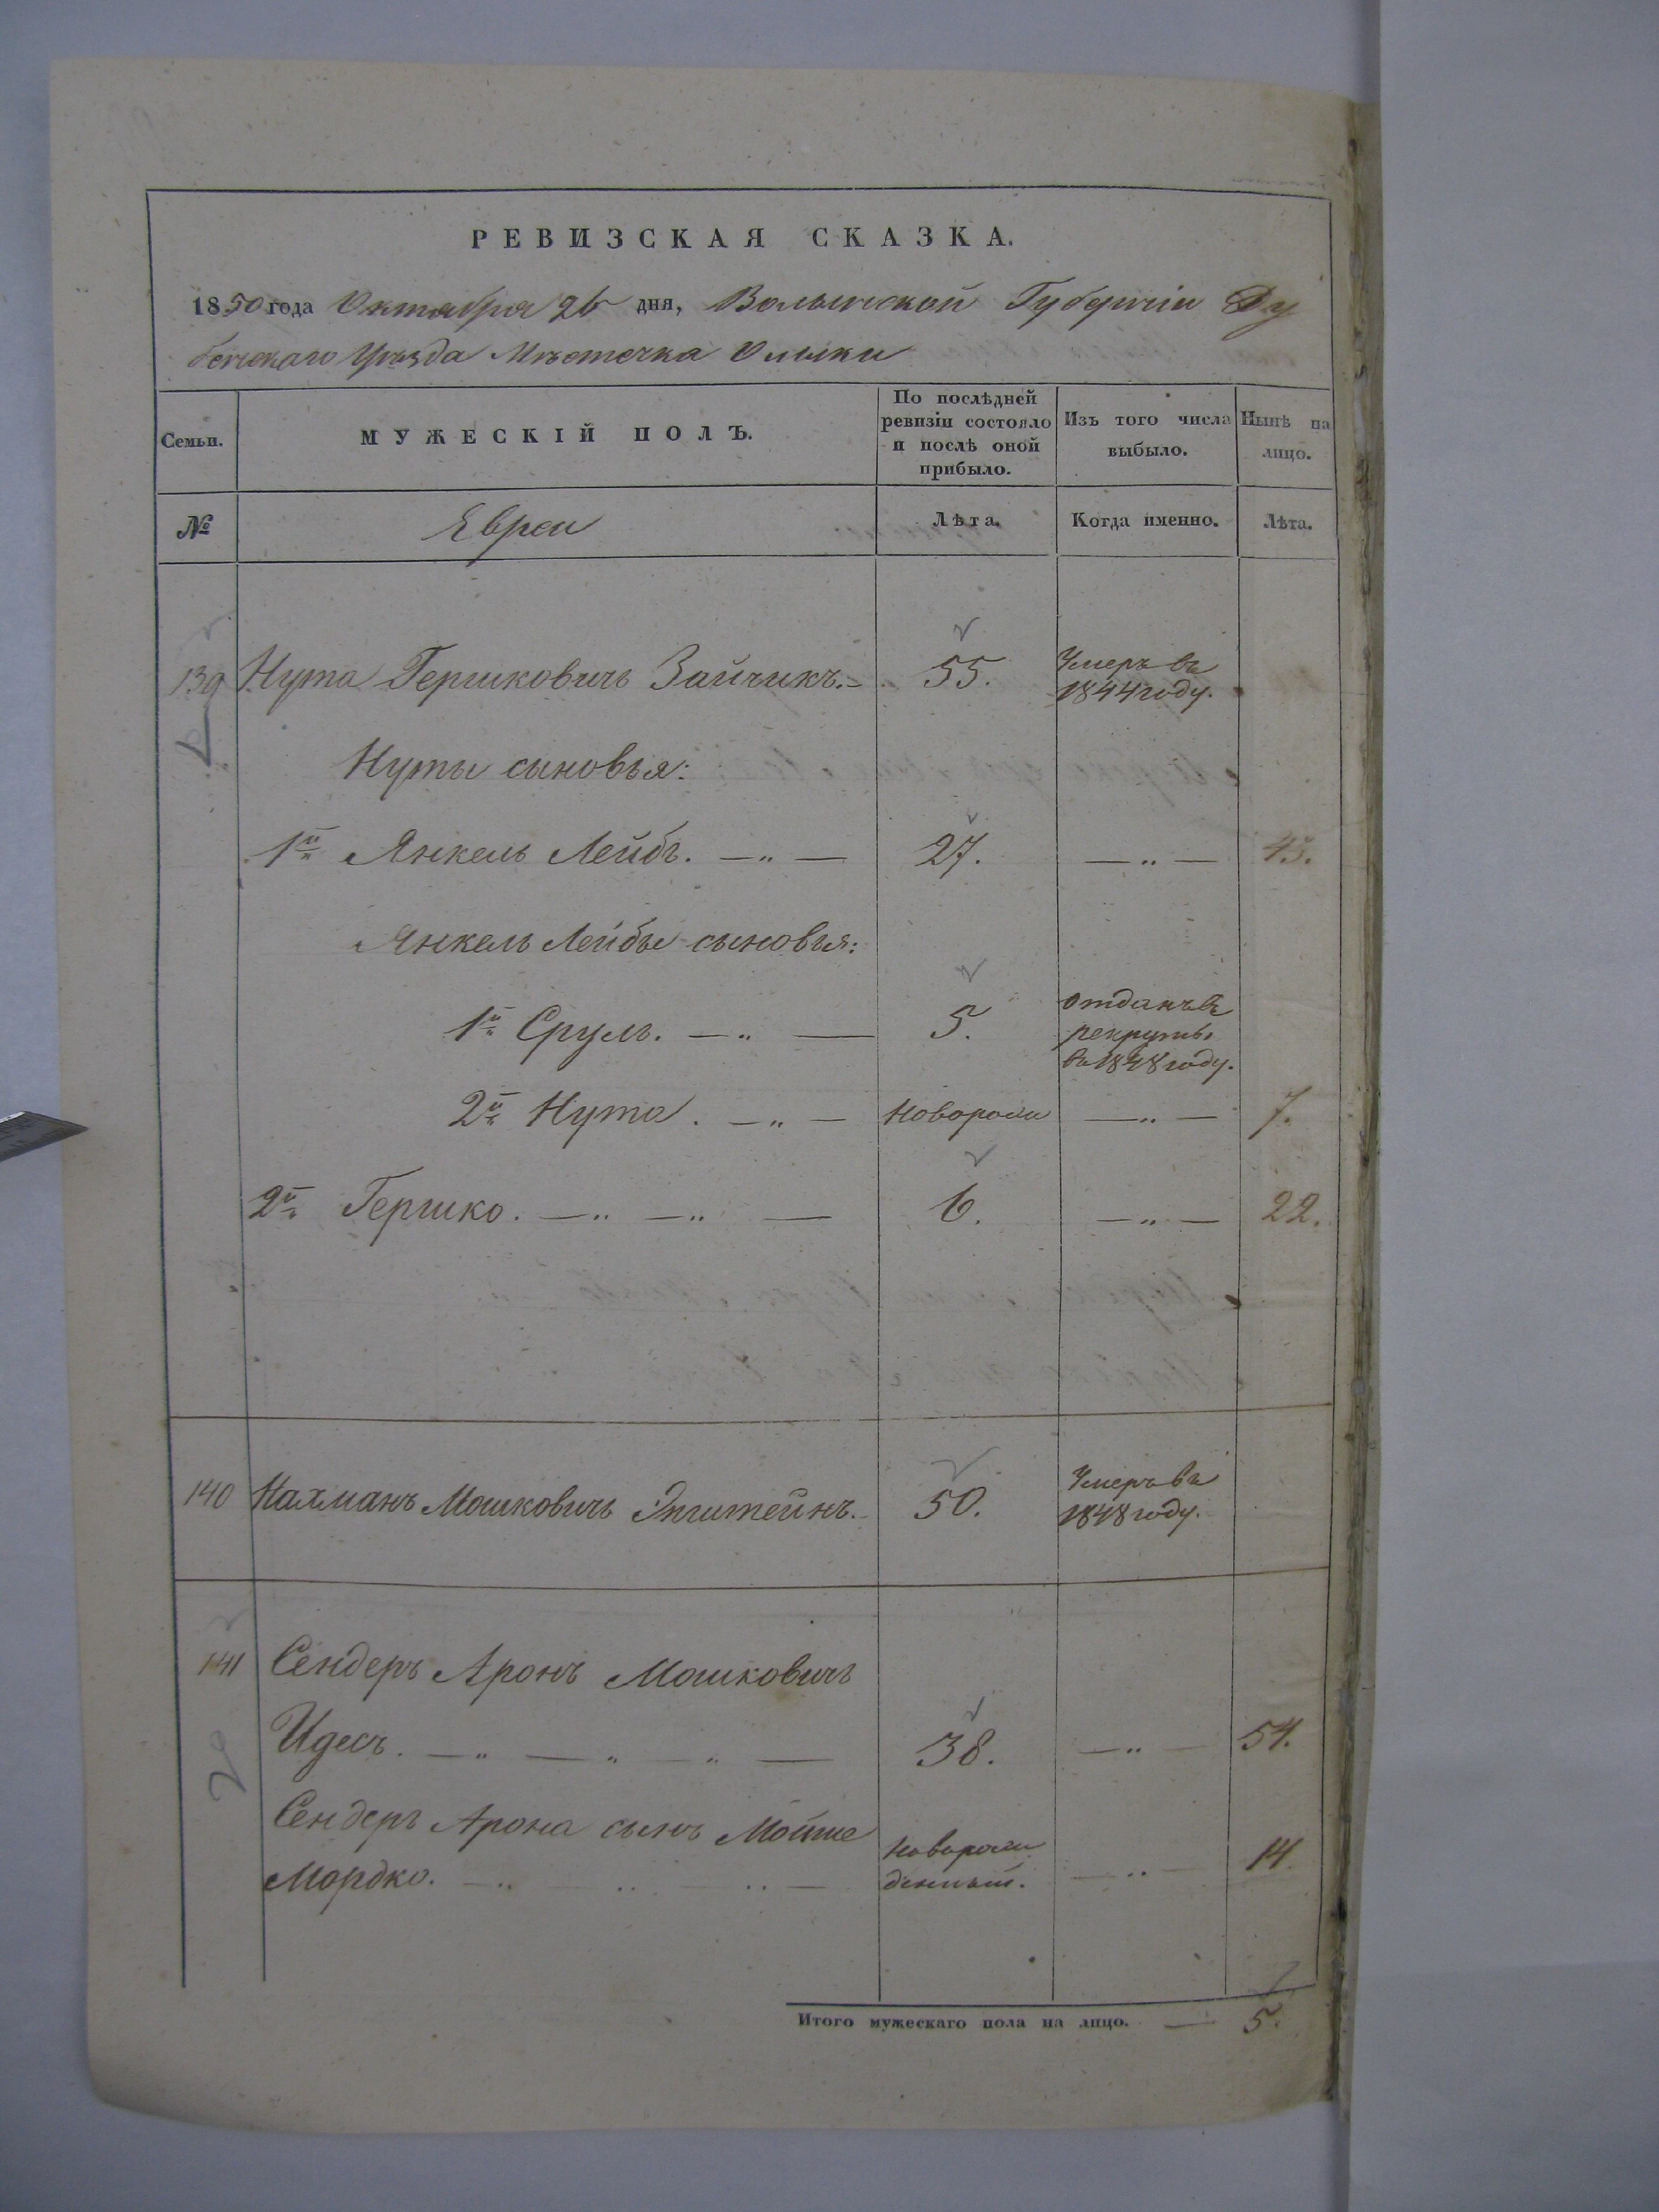 РЕВИЗСКАЯ СКАЗКА.
1850 года Октября 26 дня, Волынской Губерніи Ду
бенскаго Уѣзда Мѣстечка Олыки
Семьи.
МУЖЕСКІЙ ПОЛЪ.
По послѣдней ревизіи состояло и послѣ оной прибыло.
Изъ того числа выбыло.
Нынѣ на лицо.
№
Евреи
Лѣта.
Когда именно.
Лѣта.
139 Нута Гершковичъ Зайчикъ. 55. Умеръ въ 1844 году.
Нуты сыновья:
1й Янкель Лейбъ. — „ — 27. — „ — 43.
Янкель Лейбы сыновья:
1й Сруль. — „ — 5. отданъ въ рекруты въ 1848 году.
2й Нута. — „ — Новорож — „ — 7.
2й Гершко. — „ — „ — 6. — „ — 22.
140 Нахманъ Мошковичъ Эпштейнъ. 50. Умеръ въ 1848 году.
141 Сендеръ Аронъ Мошковичъ
Идесъ. — „ — „ — „ — 38. — „ — 54.
Сендеръ Арона сынъ Мойше
Мордко. — „ — „ — „ — новорож денный. — „ — 14.
Итого мужескаго пола на лицо. — 5.